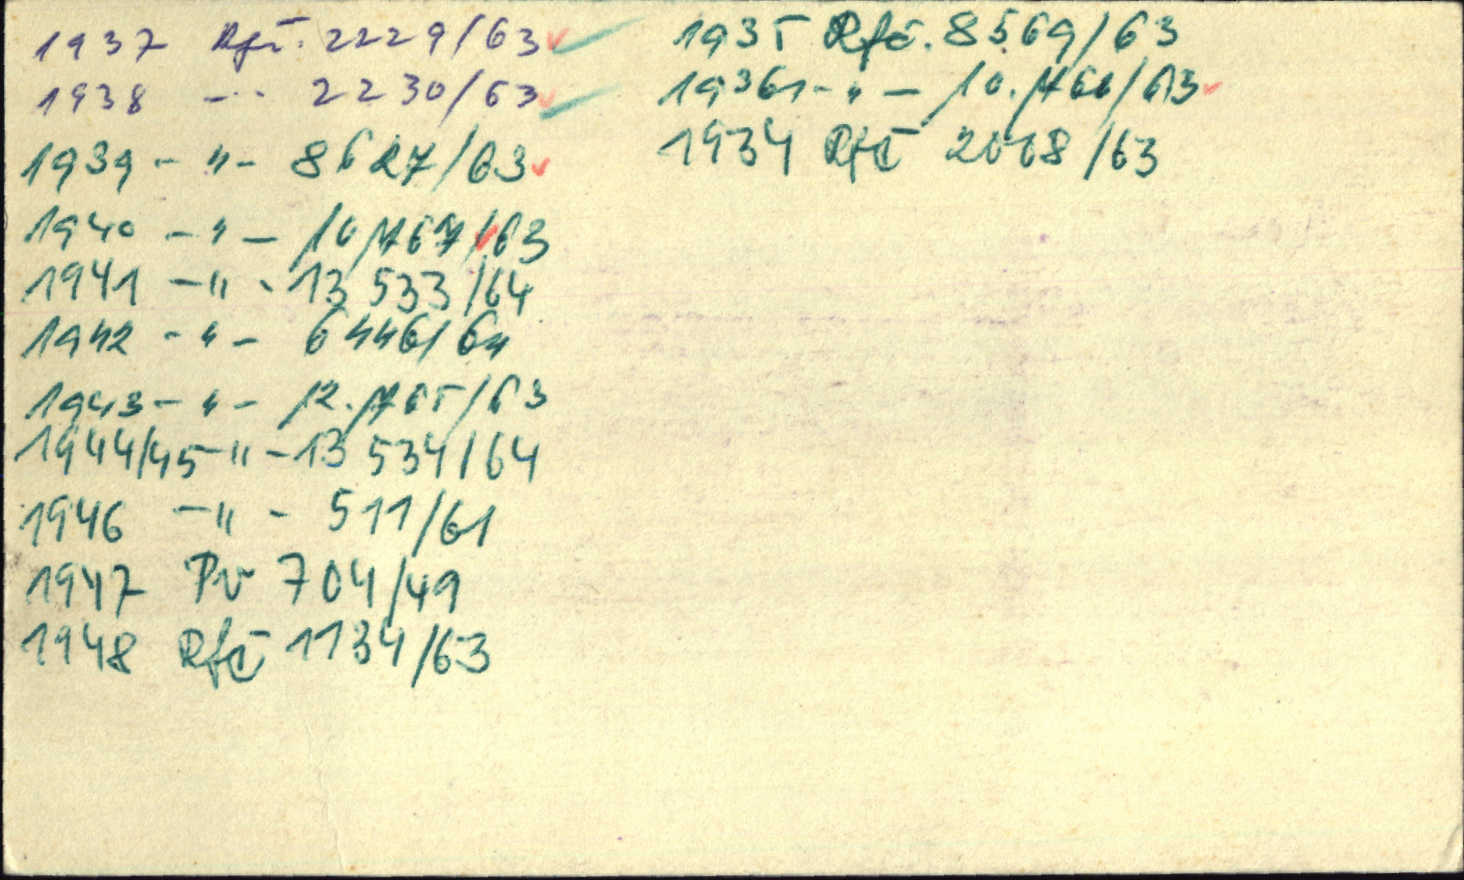 1937 Rfč. 2229/63
1938 -"- 2230/63
1939 -"- 8627/63
1940 -"- 10.767/63
1941 -"- 13 533/64
1942 -"- 6446/64
1943 -"- 12.765/63
1944/45 -"- 13 534/64
1946 -"- 511/61
1947 Pv 704/49
1948 Rfč 1134/63
1935 Rfč. 8569/63
1936 -"- 10.766/63
1934 Rfč /63